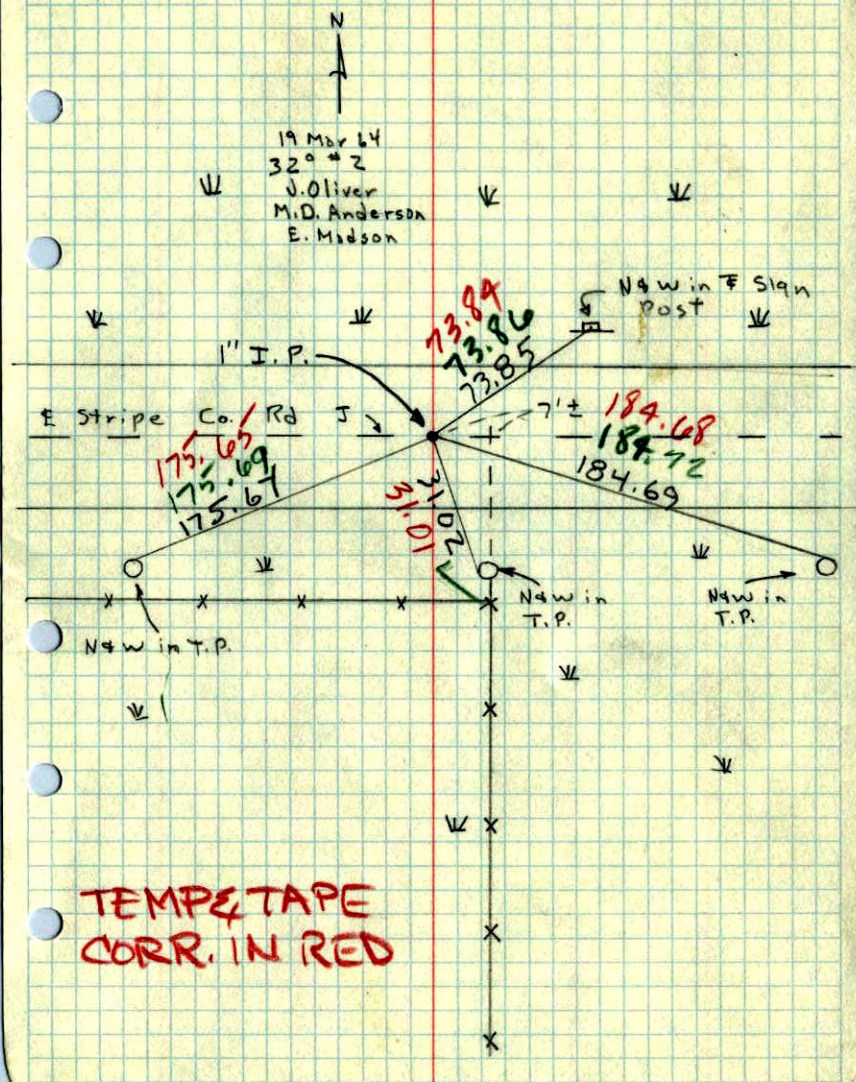 N
19 Mar 64
32° #2
J. Oliver
M.D. Anderson
E. Madson
N & W in ℄ Sign
Post
73.84
73.86
73.85
1" I.P.
℄ Stripe Co. Rd J
7'±
184.68
184.72
184.69
175.65
175.69
175.67
31.02
31.01
N & W in T.P.
N & W in
T.P.
N & W in
T.P.
TEMP & TAPE
CORR. IN RED